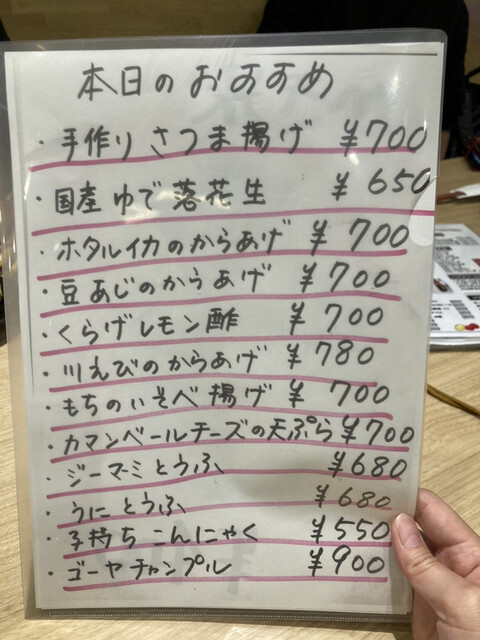 本日のおすすめ
・手作りさつま揚げ ¥700
・国産ゆで落花生 ¥650
・ホタルイカのからあげ ¥700
・豆あじのからあげ ¥700
・くらげレモン酢 ¥700
・川えびのからあげ ¥780
・もちのいそべ揚げ ¥700
・カマンベールチーズの天ぷら ¥700
・ジーマミとうふ ¥680
・うにとうふ ¥680
・子持ちこんにゃく ¥550
・ゴーヤチャンプル ¥900